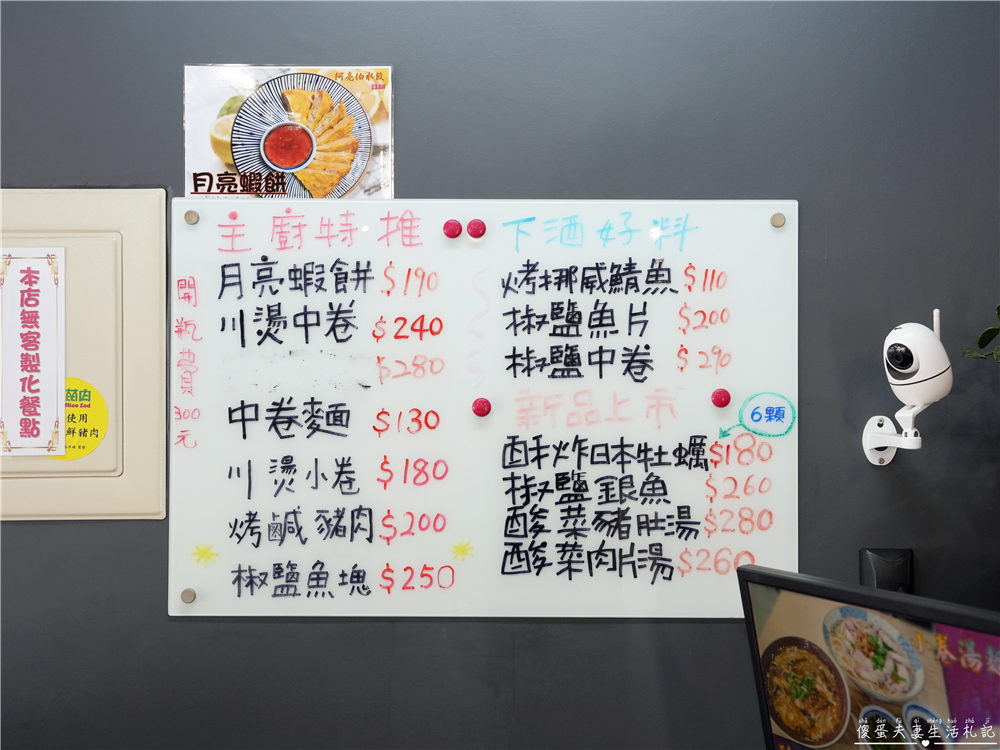 阿亮伯水餃
月亮蝦餅
本店無客製化餐點
使用
鮮豬肉
開瓶費300元
主廚特推
月亮蝦餅 $190
川燙中卷 $240
$280
中卷麵 $130
川燙小卷 $180
烤鹹豬肉 $200
椒鹽魚塊 $250
下酒好料
烤挪威鯖魚 $110
椒鹽魚片 $200
椒鹽中卷 $290
新品上市
6顆
酥炸日本牡蠣 $180
椒鹽銀魚 $260
酸菜豬肚湯 $280
酸菜肉片湯 $260
小卷湯麵
shǎ dàn fū qī shēng huó zhá jì
傻蛋夫妻生活札記